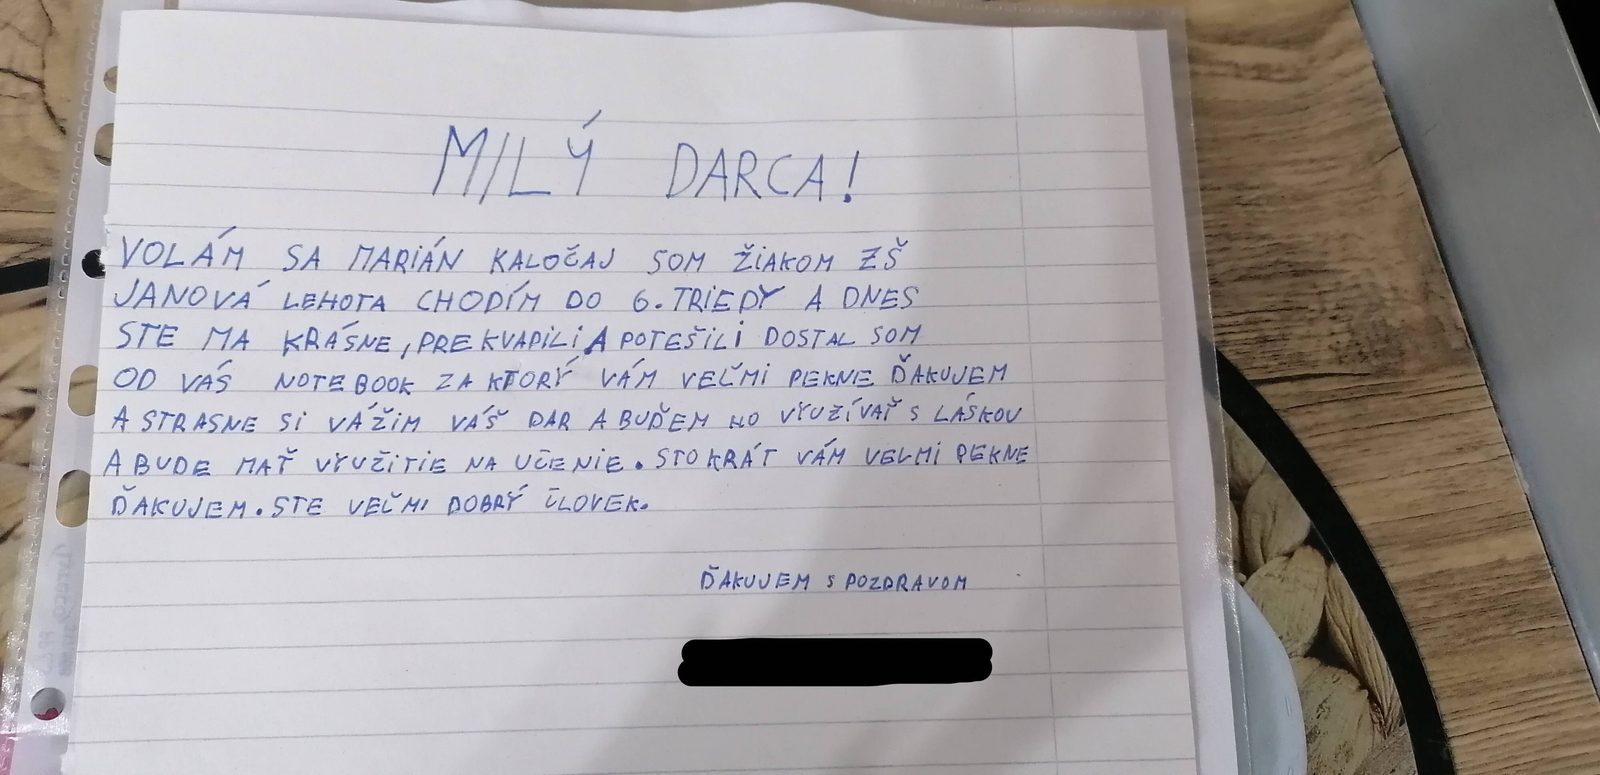 MILÝ DARCA!
VOLÁM SA MARIÁN KALOČAJ SOM ŽIAKOM ZŠ
JANOVÁ LEHOTA CHODÍM DO 6. TRIEDY A DNES
STE MA KRÁSNE, PREKVAPILI A POTEŠILI DOSTAL SOM
OD VÁS NOTEBOOK ZA KTORÝ VÁM VEĽMI PEKNE ĎAKUJEM
A STRASNE SI VÁŽIM VÁŠ DAR A BUĎEM HO VYUŽÍVAŤ S LÁSKOU
A BUDE MAŤ VYUŽITIE NA UČENIE. STOKRÁT VÁM VELMI PEKNE
ĎAKUJEM. STE VEĽMI DOBRÝ ČLOVEK.
ĎAKUJEM S POZDRAVOM